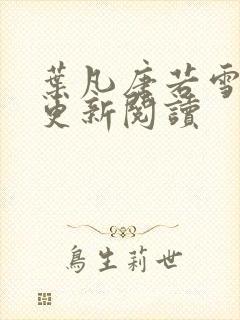 葉凡唐若雪
更新閱讀
鳥生莉世